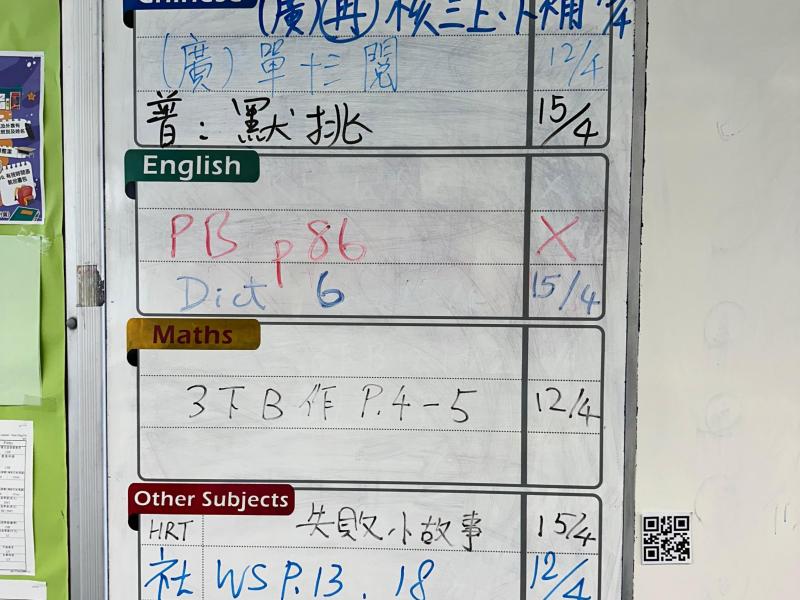 Chinese
(廣)(再)核三上、下補
(廣)單十三閱 12/4
普:默挑 15/4
English
PB p86 X
Dict 6 15/4
Maths
3下B作 P.4-5 12/4
Other Subjects
HRT 失敗小故事 15/4
社 WS P.13, 18 12/4